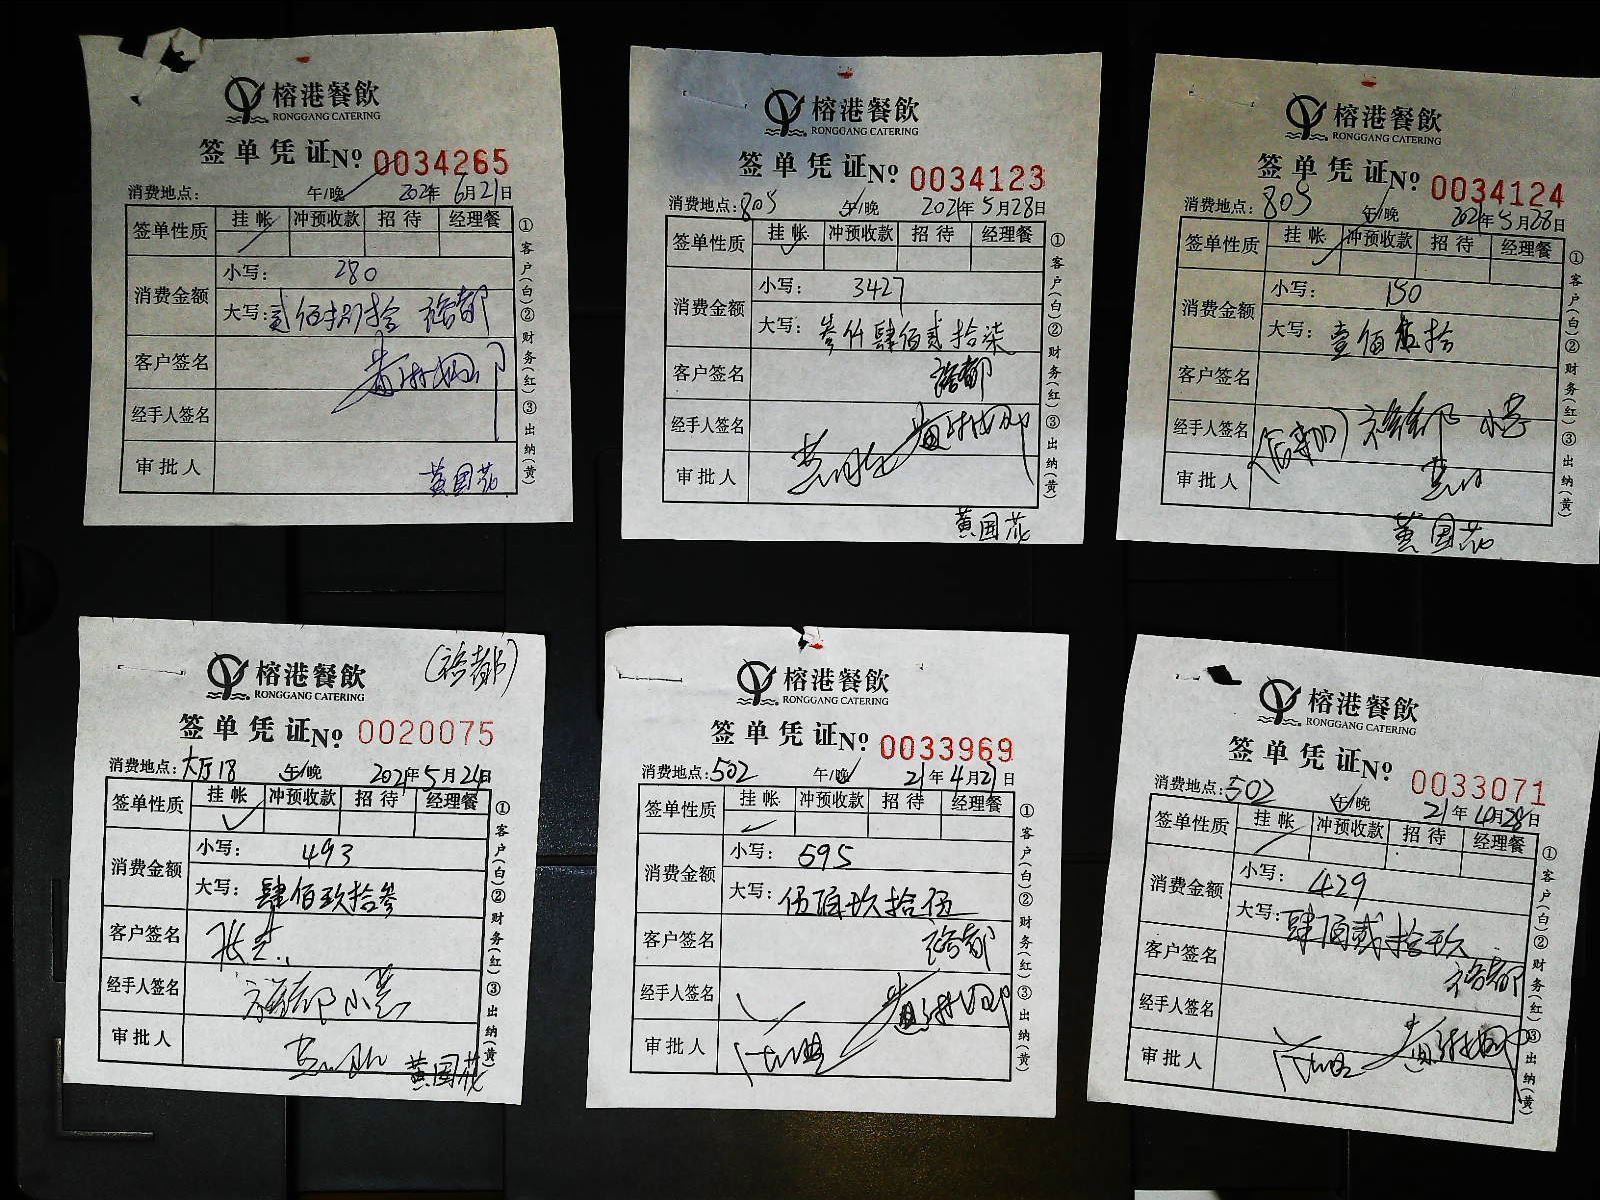 榕港餐飲
RONGGANG CATERING
签单凭证 No 0034265
消费地点: 午/晚 2021年6月21日
签单性质 挂帐 冲预收款 招待 经理餐
消费金额 小写: 280
大写: 贰佰捌拾 裕都
客户签名
经手人签名
审批人 黄国花
①客户(白)②财务(红)③出纳(黄)
榕港餐飲
RONGGANG CATERING
签单凭证 No 0034123
消费地点: 805 午/晚 2021年5月28日
签单性质 挂帐 冲预收款 招待 经理餐
消费金额 小写: 3427
大写: 叁仟肆佰贰拾柒
客户签名 裕都
经手人签名
审批人
黄国花
①客户(白)②财务(红)③出纳(黄)
榕港餐飲
RONGGANG CATERING
签单凭证 No 0034124
消费地点: 805 午/晚 2021年5月28日
签单性质 挂帐 冲预收款 招待 经理餐
消费金额 小写: 150
大写: 壹佰伍拾
客户签名
经手人签名 裕都
审批人
黄国花
①客户(白)②财务(红)③出纳(黄)
(裕都)
榕港餐飲
RONGGANG CATERING
签单凭证 No 0020075
消费地点: 大厅18 午/晚 2021年5月24日
签单性质 挂帐 冲预收款 招待 经理餐
消费金额 小写: 493
大写: 肆佰玖拾叁
客户签名
经手人签名 裕都
审批人 黄国花
①客户(白)②财务(红)③出纳(黄)
榕港餐飲
RONGGANG CATERING
签单凭证 No 0033969
消费地点: 502 午/晚 21年4月27日
签单性质 挂帐 冲预收款 招待 经理餐
消费金额 小写: 595
大写: 伍佰玖拾伍
客户签名 裕都
经手人签名
审批人
①客户(白)②财务(红)③出纳(黄)
榕港餐飲
RONGGANG CATERING
签单凭证 No 0033071
消费地点: 502 午/晚 21年4月28日
签单性质 挂帐 冲预收款 招待 经理餐
消费金额 小写: 429
大写: 肆佰贰拾玖
客户签名 裕都
经手人签名
审批人
①客户(白)②财务(红)③出纳(黄)